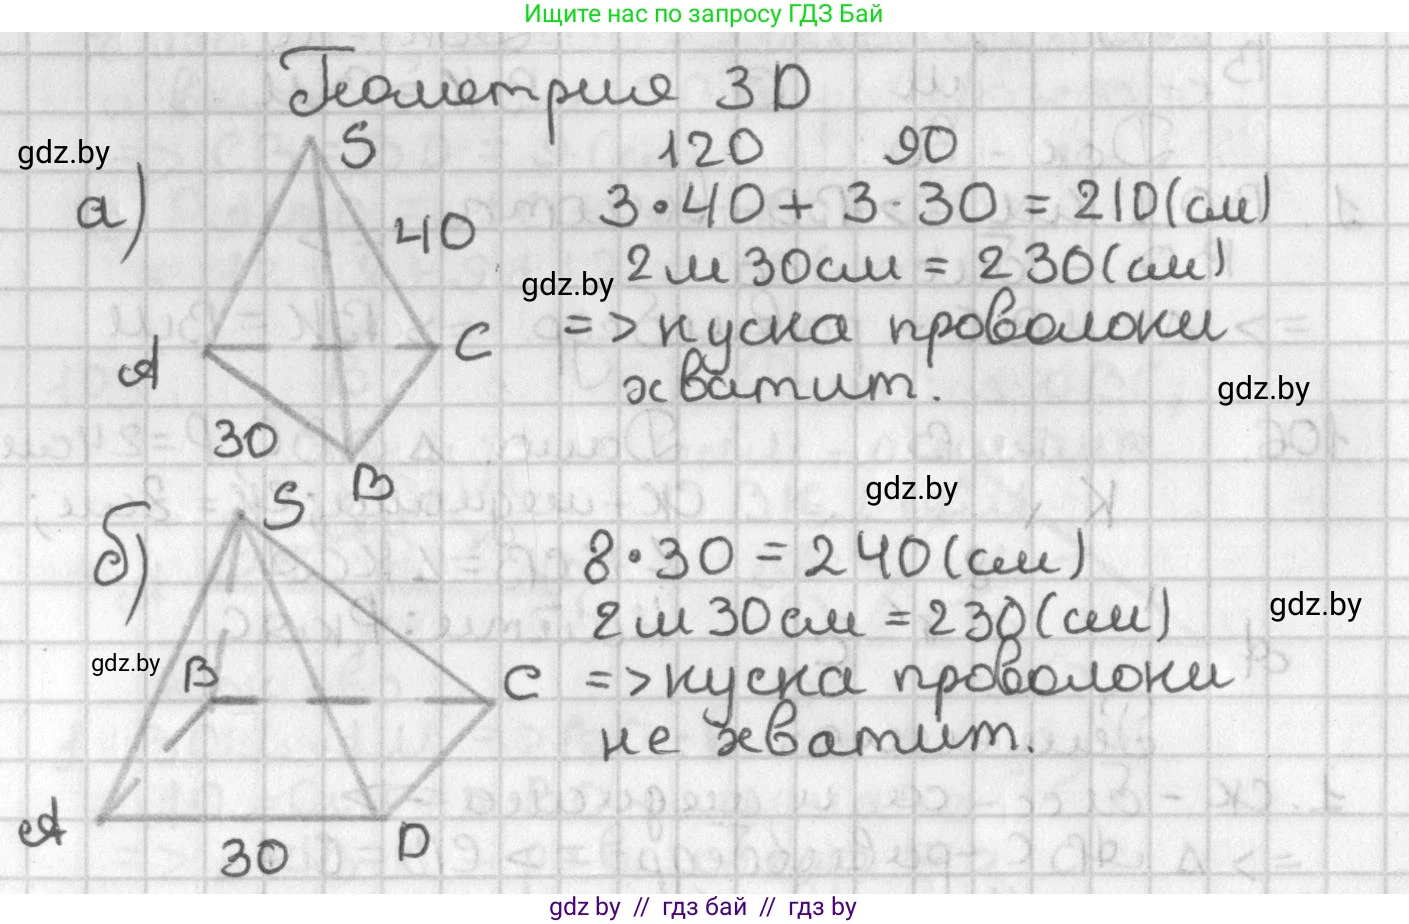 Ищите нас по запросу ГДЗ Бай
Геометрия 3D
gdz.by
а)
S
40
A
C
30
B
120 90
3·40 + 3·30 = 210(см)
2 м 30 см = 230(см)
gdz.by
=> куска проволоки
хватит.
gdz.by
gdz.by
б)
S
B
C
A
30
D
gdz.by
8·30 = 240(см)
2 м 30 см = 230(см)
gdz.by
=> куска проволоки
не хватит.
gdz.by // гдз бай // гдз by